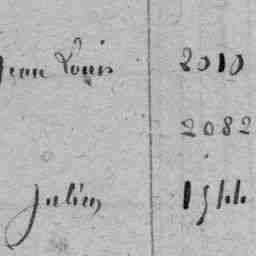 Jean Louis 2010
2082
Julien 1544